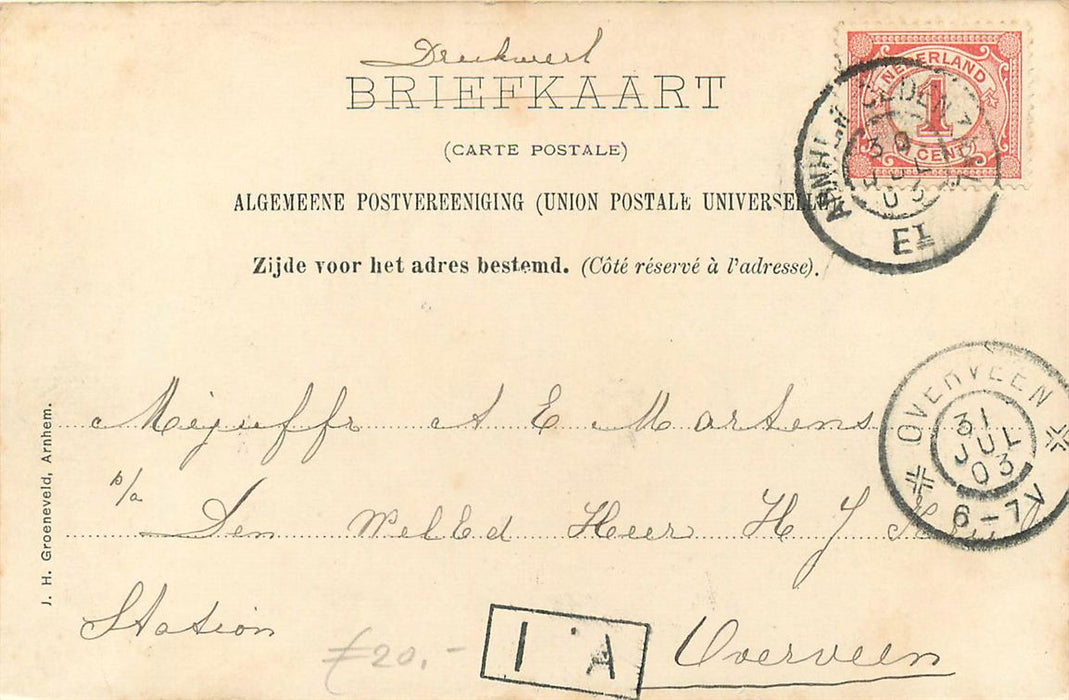 Drukwerk
BRIEFKAART
(CARTE POSTALE)
ALGEMEENE POSTVEREENIGING (UNION POSTALE UNIVERSELLE)
Zijde voor het adres bestemd. (Côté réservé à l'adresse).
NEDERLAND
1
CENT
ARNHEM
30
JUL
03
EI
OVERVEEN
31
JUL
03
6-7
Mejuffr A E Martens
p/a
Den WelEd Heer H J
Station
Overveen
I A
£20.-
J. H. Groeneveld, Arnhem.